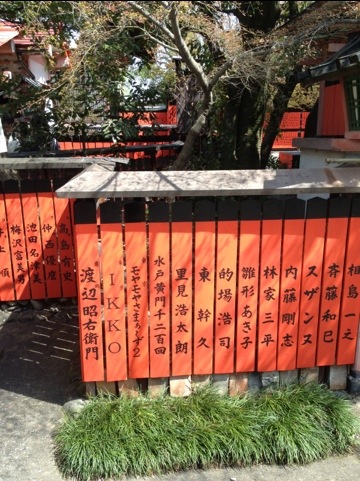 相島一之
斉藤和巳
スザンヌ
内藤剛志
林家三平
雛形あき子
的場浩司
東幹久
里見浩太朗
水戸黄門千二百回
モヤモヤさまぁ~ず2
IKKO
渡辺昭右衛門
高島有史
仲西優座
池田名津美
梅沢富美男
井上順